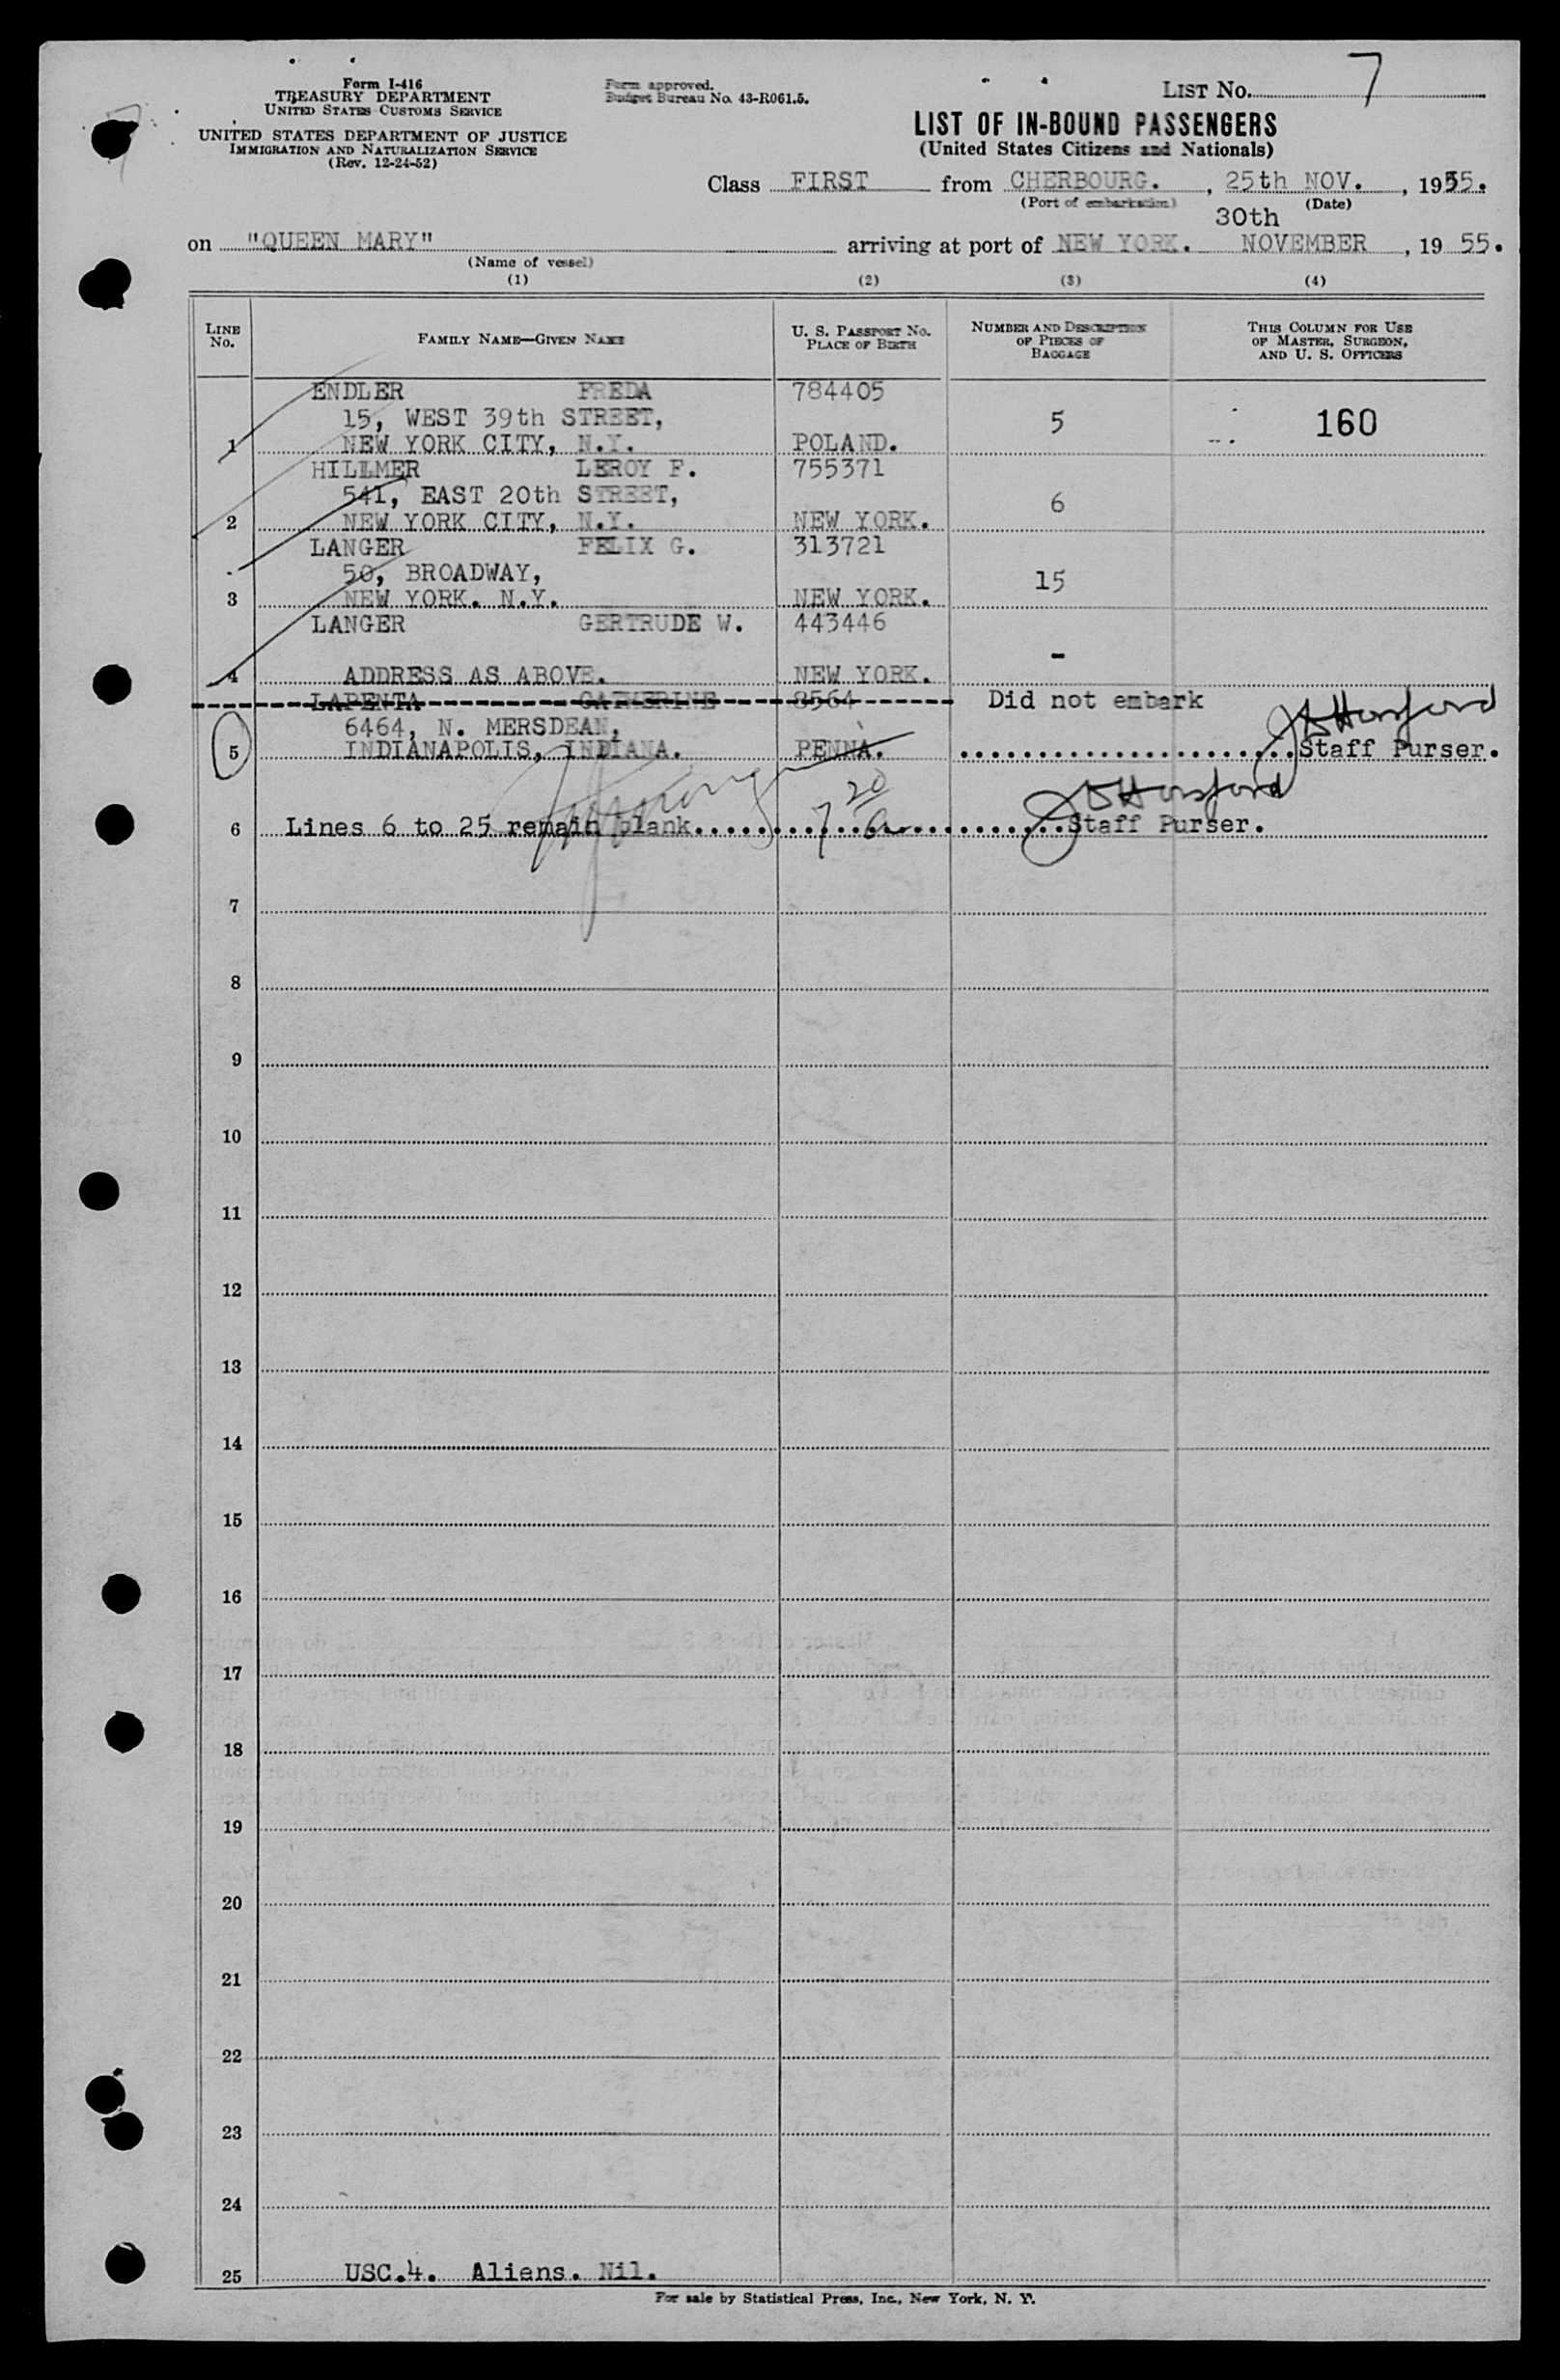 Form I-416
TREASURY DEPARTMENT
UNITED STATES CUSTOMS SERVICE
UNITED STATES DEPARTMENT OF JUSTICE
IMMIGRATION AND NATURALIZATION SERVICE
(Rev. 12-24-52)
Form approved.
Budget Bureau No. 43-R061.5.
LIST No. 7
LIST OF IN-BOUND PASSENGERS
(United States Citizens and Nationals)
Class FIRST from CHERBOURG. , 25th NOV. , 1955.
(Port of embarkation) (Date)
30th
on "QUEEN MARY" arriving at port of NEW YORK. NOVEMBER , 19 55.
(Name of vessel)
(1) (2) (3) (4)
LINE No. FAMILY NAME—GIVEN NAME U. S. PASSPORT NO. PLACE OF BIRTH NUMBER AND DESCRIPTION OF PIECES OF BAGGAGE THIS COLUMN FOR USE OF MASTER, SURGEON, AND U. S. OFFICERS
ENDLER FREDA 784405
15, WEST 39th STREET, 5 160
1 NEW YORK CITY, N.Y. POLAND.
HILLMER LEROY F. 755371
541, EAST 20th STREET, 6
2 NEW YORK CITY, N.Y. NEW YORK.
LANGER FELIX G. 313721
50, BROADWAY, 15
3 NEW YORK. N.Y. NEW YORK.
LANGER GERTRUDE W. 443446
-
4 ADDRESS AS ABOVE. NEW YORK.
LAPENTA CATHERINE 8564 Did not embark
6464, N. MERSDEAN,
5 INDIANAPOLIS, INDIANA. PENNA. Staff Purser.
7 20
6 Lines 6 to 25 remain blank. Staff Purser.
7
8
9
10
11
12
13
14
15
16
17
18
19
20
21
22
23
24
25 USC.4. Aliens. Nil.
For sale by Statistical Press, Inc., New York, N. Y.